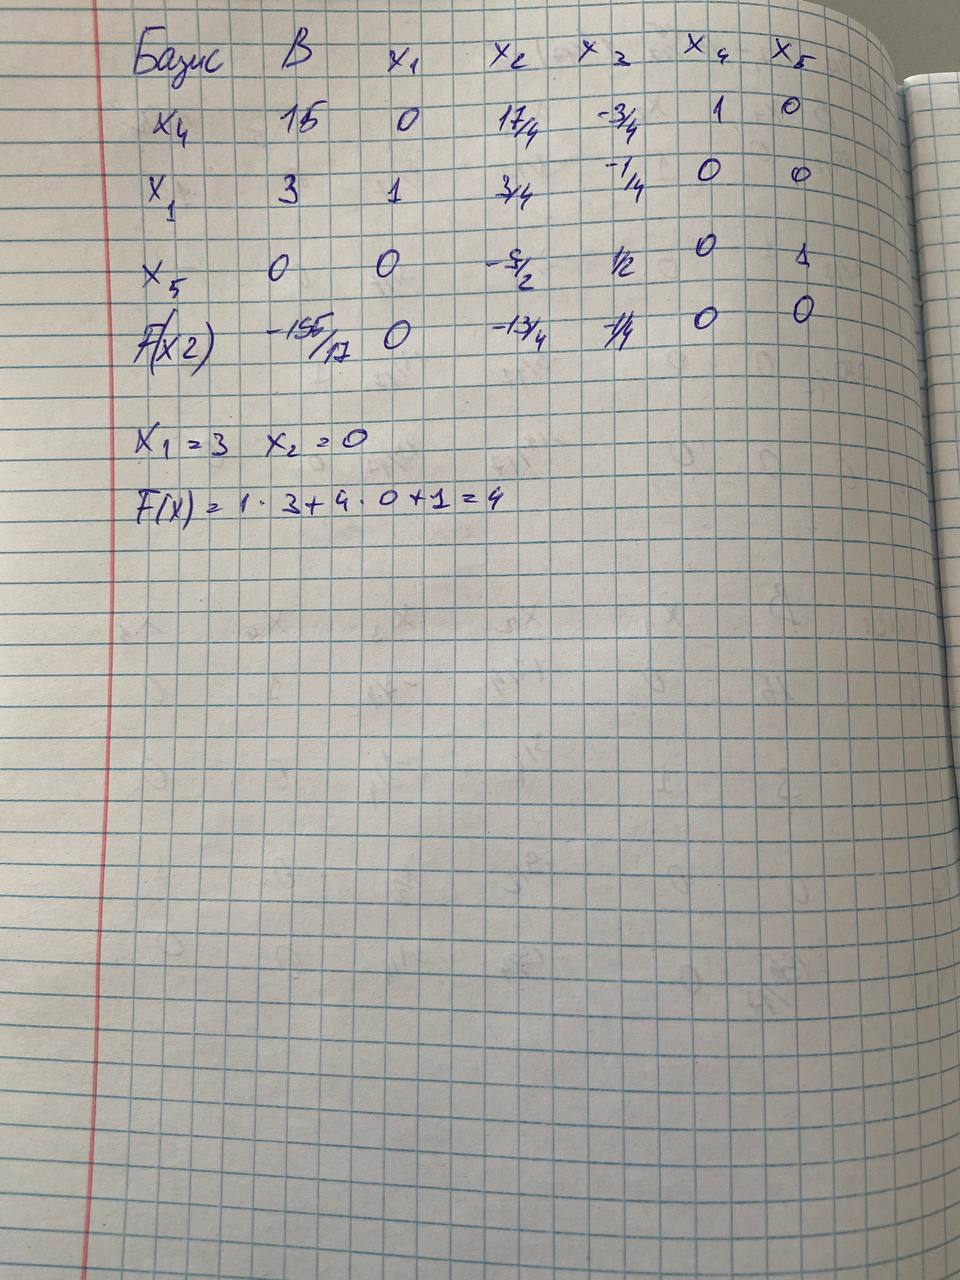 Базис B x1 x2 x3 x4 x5
x4 15 0 17/4 -3/4 1 0
x1 3 1 3/4 -1/4 0 0
x5 0 0 -5/2 1/2 0 1
F(x2) -155/17 0 -13/4 -1/4 0 0
x1 = 3 x2 = 0
F(x) = 1 · 3 + 4 · 0 + 1 = 4